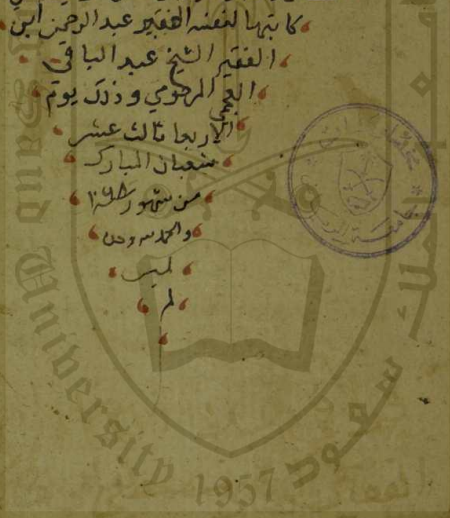 كاتبها لنفسه الفقير عبد الرحمن ابن
الفقير الشيخ عبد الباقي
العجمي المرحومي وذلك يوم
الاربعا ثالث عشر
شعبان المبارك
من شهور
والحمد لله وحده
لم
King Saud University
1957
جامعة الملك سعود
جامعة الرياض